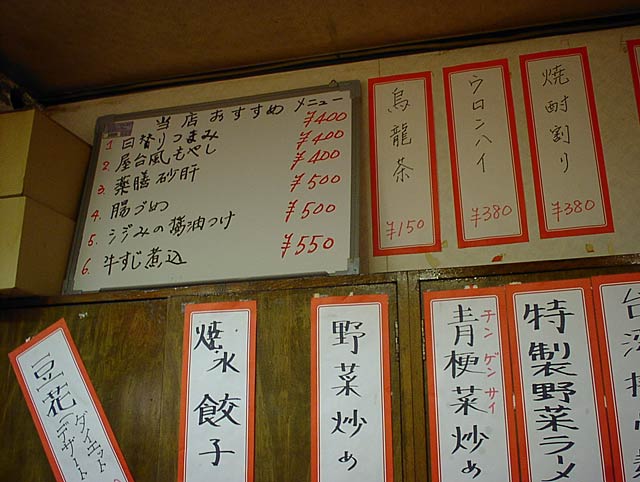 当店おすすめ メニュー
1 日替りつまみ ¥400
2. 屋台風もやし ¥400
3. 薬膳砂肝 ¥400
4. 腸づめ ¥500
5. シジみの醤油つけ ¥500
6. 牛すじ煮込 ¥550
烏龍茶
¥150
ウロンハイ
¥380
焼酎割り
¥380
豆花
ダイエット
デザート
焼水餃子
野菜炒め
青梗菜炒め
チンゲンサイ
特製野菜ラーメ